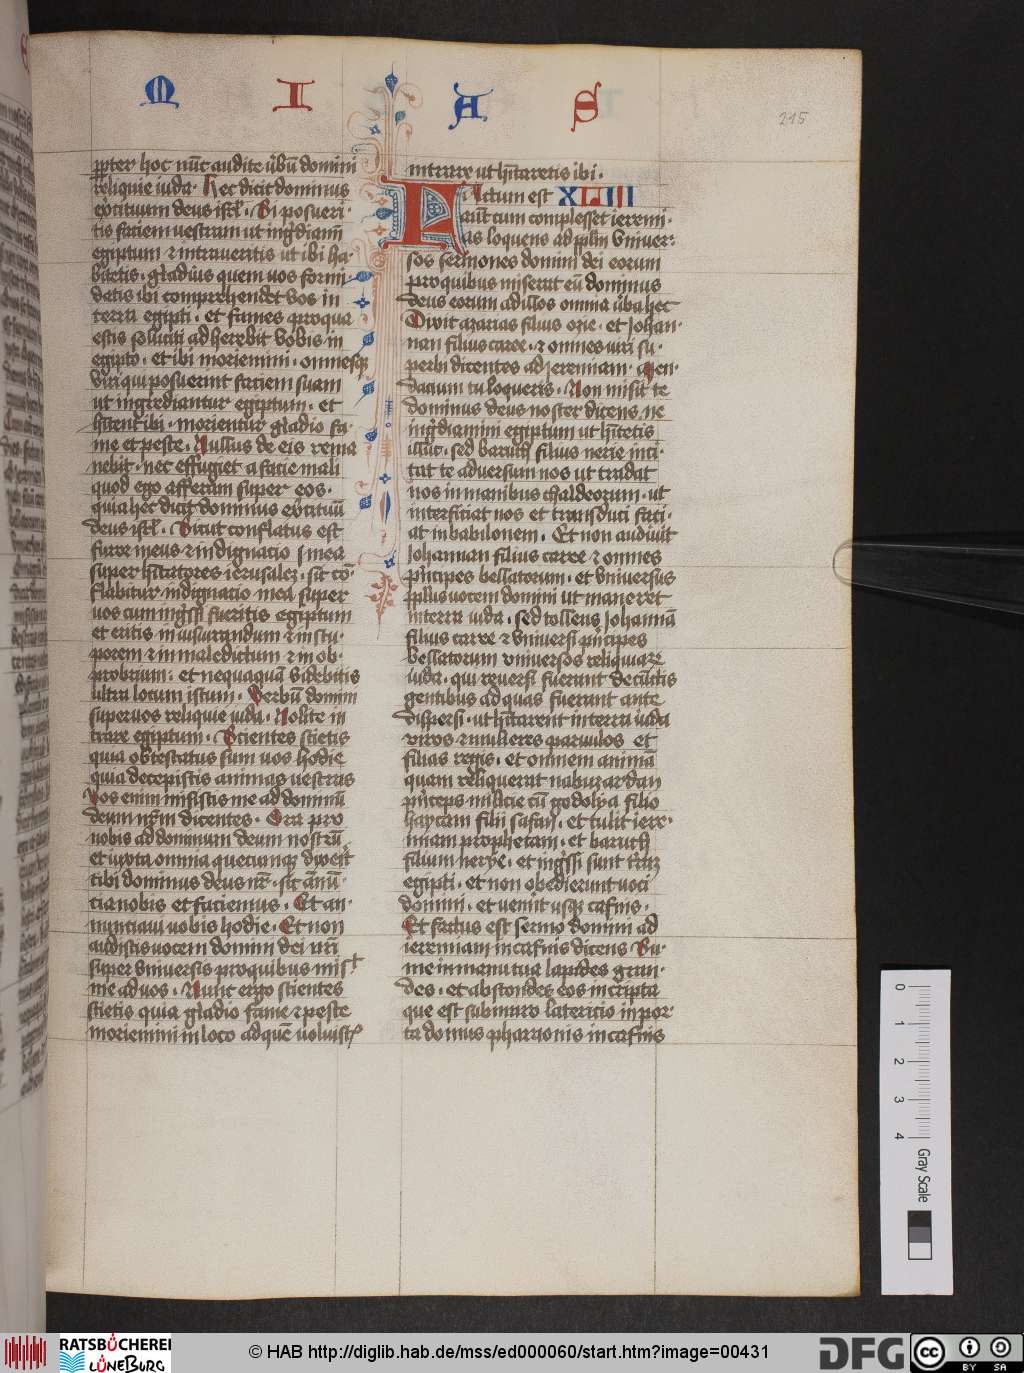 M I A S
215
pter hoc nūc audite ūbū domini
reliquie iuda · Hec dicit dominus
exercituum deus isrl · Si posueri ·
tis faciem vestram ut ingrdiam̄
egiptum ⁊ intraveritis ut ibi ha·
bitetis · gladius quem vos formi·
datis ibi comprehendet vos in
terra egipti · et fames proqua
estis soliciti adherebit vobis in
egipto · et ibi moriemini · omnesq
viri qui posuerint faciem suam
ut ingrediantur egiptum · et
hītent ibi · morientur gladio fa·
me et peste · Nullus de eis rema
nebit · nec effugiet a facie mali
quod ego afferam super eos ·
quia hec dicit dominus exercituū
deus isrl · Sicut conflatus est
furor meus ⁊ indignatio mea
super hītatores ierusalez · sic cō·
flabitur indignatio mea super
vos cum ingrssi fueritis egiptum
et eritis in iusiurandum ⁊ in stu·
porem ⁊ in maledictum ⁊ in ob·
probrium · et nequaquā videbitis
ultra locum istum · Verbū domini
super vos reliquie iuda · Nolite in
trare egiptum · Scientes scietis
quia obtestatus sum vos hodie
quia decepistis animas vestras
Vos enim misistis me ad dominū
deum nrm dicentes · Ora pro
nobis ad dominum deum nostrū
et iuxta omnia quecumq dixerit
tibi dominus deus nr · sic ānū·
tia nobis et faciemus · Et an·
nuntiavi vobis hodie · Et non
audistis vocem domini dei vrī
super universis pro quibus mis
me ad vos · Nunc ergo scientes
scietis quia gladio fame ⁊ peste
moriemini in loco ad quē voluist
intrare ut hītaretis ibi ·
Factum est XLIII
aūt cum complesset ieremi·
as loquens ad pplm univer·
sos sermones domini dei eorum
pro quibus miserat eū dominus
deus eorum ad illos omnia ūba hec
Dixit azarias filius ozie · et Johan·
nan filius caree · ⁊ omnes viri su·
perbi dicentes ad Jeremiam · Men·
dacium tu loqueris · Non misit te
dominus deus noster dicens · ne
ingrdiamini egiptum ut hītetis
illuc · sed baruch filius nerie inci·
tat te adversum nos ut tradat
nos in manibus chaldeorum · ut
interficiat nos et transduci faci·
at in babilonem · Et non audivit
Johannan filius caree ⁊ omnes
prīcipes bellatorum · et universus
pplus vocem domini ut maneret
in terra iuda · sed tollens Johannā
filius caree ⁊ universi prīcipes
bellatorum universos reliquiarz
iuda · qui reversi fuerant de cūctis
gentibus ad quas fuerant ante
dispersi · ut hītarent in terra iuda
viros ⁊ mulieres parvulos et
filias regis · et omnem animā
quam reliquerat nabuzardan
prīceps milicie cū godolya filio
haycam filii safan · et tulit iere·
miam prophetam · et baruch
filium nerye · et ingrssi sunt trāz
egipti · et non obedierunt voci
domini · et venit usq tafnis ·
Et factus est sermo domini ad
ieremiam in tafnis dicens Su·
me in manu tua lapides gran·
des · et abscondes eos in cripta
que est sub muro latericio in por·
ta domus pharaonis in tafnis
0
1
2
3
4
Gray Scale
RATSBÜCHEREI
LÜNEBURG
© HAB http://diglib.hab.de/mss/ed000060/start.htm?image=00431
DFG
cc
BY SA